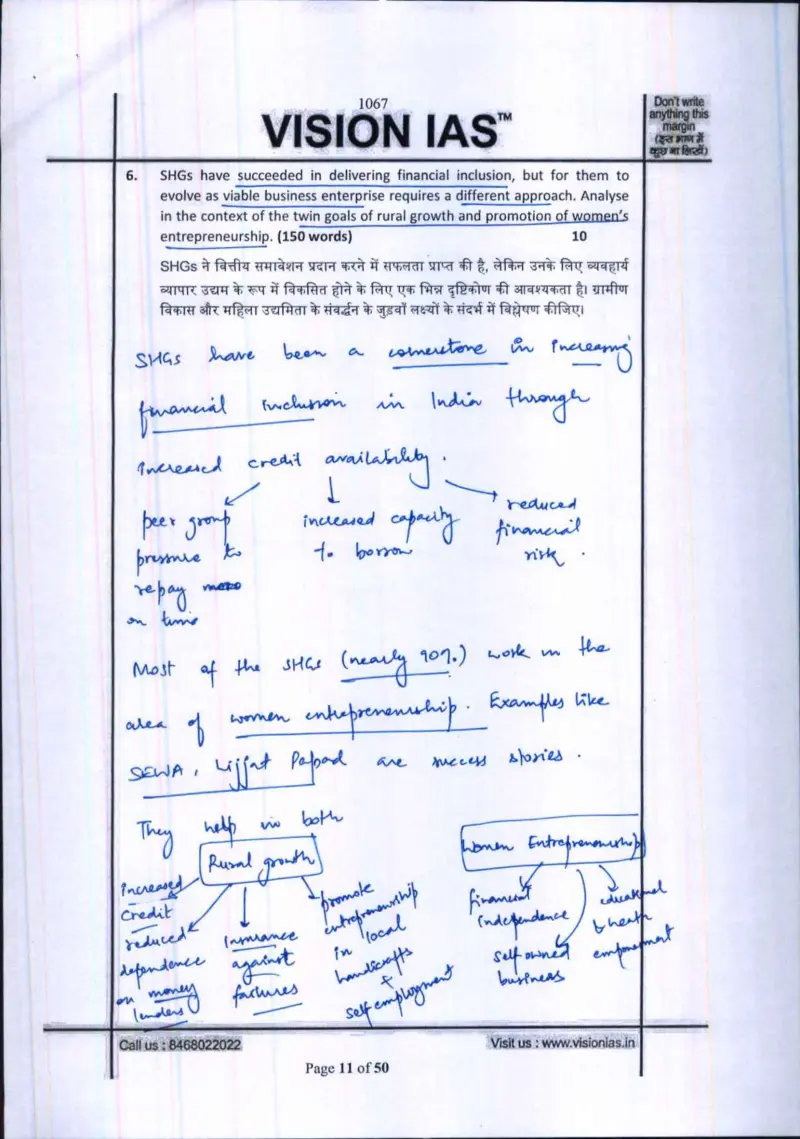 1067
VISION IAS™
Don't write
anything this
margin
(इस भाग में
कुछ ना लिखें)
6. SHGs have succeeded in delivering financial inclusion, but for them to
evolve as viable business enterprise requires a different approach. Analyse
in the context of the twin goals of rural growth and promotion of women's
entrepreneurship. (150 words) 10
SHGs ने वित्तीय समावेशन प्रदान करने में सफलता प्राप्त की है, लेकिन उनके लिए व्यवहार्य
व्यापार उद्यम के रूप में विकसित होने के लिए एक भिन्न दृष्टिकोण की आवश्यकता है। ग्रामीण
विकास और महिला उद्यमिता के संवर्द्धन के जुड़वाँ लक्ष्यों के संदर्भ में विश्लेषण कीजिए।
SHGs have been a cornerstone in increasing
financial inclusion in India through
increased credit availability.
peer group
pressure to
repay
on time
increased capacity
to borrow
reduced
financial
risk.
Most of the SHGs (nearly 90%) work in the
area of women entrepreneurship. Examples like
SEWA, Lijjat Papad are success stories.
They help in both
Rural growth
increased
credit
reduced
dependence
on money
lenders
insurance
against
failures
promote
entrepreneurship
in local
handicrafts
+
self employment
Women Entrepreneurship
financial
independence
self owned
business
educational
& heath
empowerment
Call us : 8468022022
Visit us : www.visionias.in
Page 11 of 50